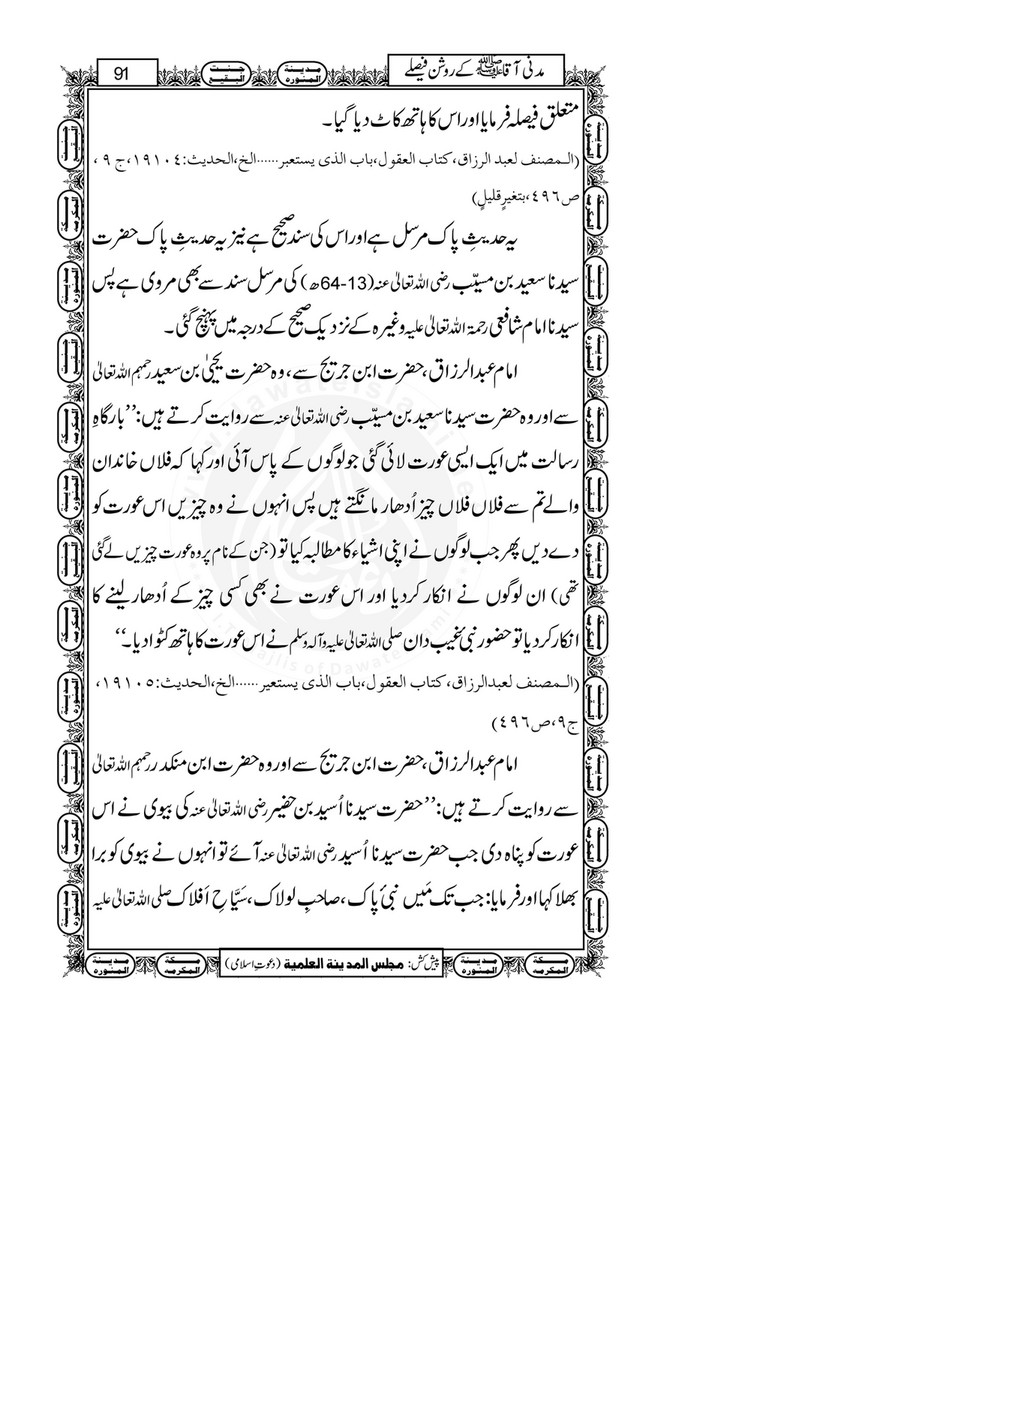 مدنی آقا ﷺ کے روشن فیصلے
91
متعلق فیصلہ فرمایا اور اس کا ہاتھ کاٹ دیا گیا۔
(الـمصنف لعبد الرزاق، کتاب العقول، باب الذی یستعبر......الخ، الحدیث: ۱۹۱۰٤، ج ۹،
ص ٤۹٦، بتغیرٍ قلیلٍ)
یہ حدیثِ پاک مرسل ہے اور اس کی سند صحیح ہے نیز یہ حدیثِ پاک حضرت
سیدنا سعید بن مسیّب رضی اللہ تعالیٰ عنہ (13-64ھ) کی مرسل سند سے بھی مروی ہے پس
سیدنا امام شافعی رحمۃ اللہ تعالیٰ علیہ وغیرہ کے نزدیک صحیح کے درجہ میں پہنچ گئی۔
امام عبدالرزاق، حضرت ابن جریج سے، وہ حضرت یحییٰ بن سعید رحمہم اللہ تعالیٰ
سے اور وہ حضرت سیدنا سعید بن مسیّب رضی اللہ تعالیٰ عنہ سے روایت کرتے ہیں: ’’بارگاہِ
رسالت میں ایک ایسی عورت لائی گئی جو لوگوں کے پاس آئی اور کہا کہ فلاں خاندان
والے تم سے فلاں فلاں چیز اُدھار مانگتے ہیں پس انہوں نے وہ چیزیں اس عورت کو
دے دیں پھر جب لوگوں نے اپنی اشیاء کا مطالبہ کیا تو (جن کے نام پر وہ عورت چیزیں لے گئی
تھی) ان لوگوں نے انکار کردیا اور اس عورت نے بھی کسی چیز کے اُدھار لینے کا
انکار کردیا تو حضور نبیٔ غیب دان صلی اللہ تعالیٰ علیہ وآلہ وسلم نے اس عورت کا ہاتھ کٹوا دیا۔‘‘
(الـمصنف لعبدالرزاق، کتاب العقول، باب الذی یستعیر......الخ، الحدیث: ۱۹۱۰۵،
ج۹، ص ٤۹٦)
امام عبدالرزاق، حضرت ابن جریج سے اور وہ حضرت ابن منکدر رحمہم اللہ تعالیٰ
سے روایت کرتے ہیں: ’’حضرت سیدنا اُسید بن حضیر رضی اللہ تعالیٰ عنہ کی بیوی نے اس
عورت کو پناہ دی جب حضرت سیدنا اُسید رضی اللہ تعالیٰ عنہ آئے تو انہوں نے بیوی کو برا
بھلا کہا اور فرمایا: جب تک مَیں نبیٔ پاک، صاحبِ لولاک، سَیَّاحِ اَفلاک صلی اللہ تعالیٰ علیہ
پیش کش: مجلس المدینة العلمیة (دعوتِ اسلامی)